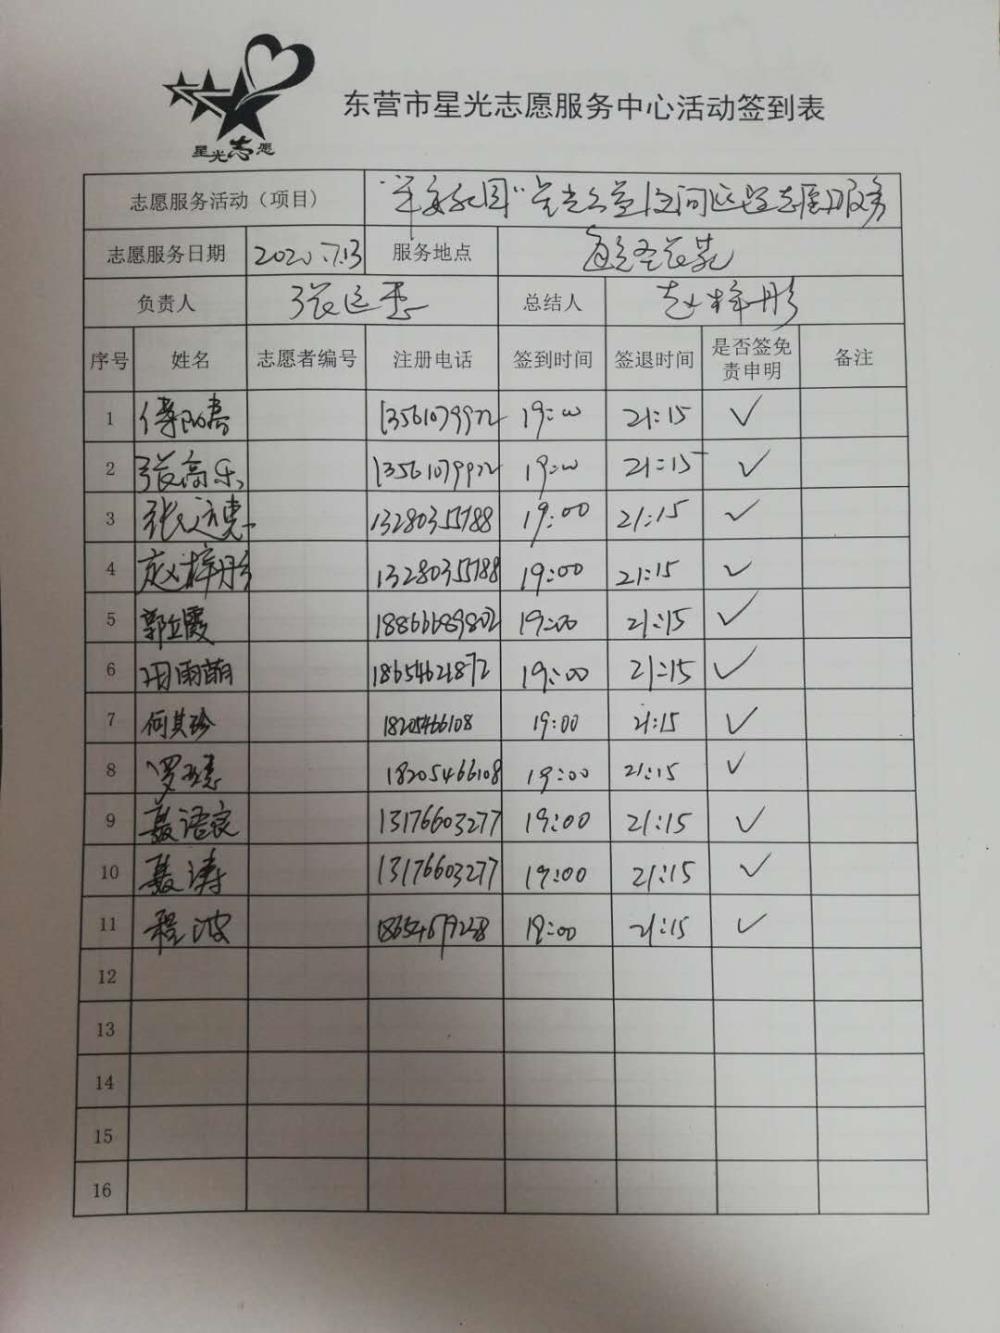 星光志愿
东营市星光志愿服务中心活动签到表
志愿服务活动（项目） 星光公益夜间巡逻志愿服务
志愿服务日期 2020.7.13 服务地点
负责人 张远惠 总结人 赵梓彤
序号 姓名 志愿者编号 注册电话 签到时间 签退时间 是否签免责申明 备注
1 13561079922 19:00 21:15 ✓
2 张高乐 13561079922 19:00 21:15 ✓
3 张远惠 13280355788 19:00 21:15 ✓
4 赵梓彤 13280355788 19:00 21:15 ✓
5 郭立霞 18866689802 19:00 21:15 ✓
6 周雨萌 18654621872 19:00 21:15 ✓
7 何其珍 18205466108 19:00 21:15 ✓
8 18205466108 19:00 21:15 ✓
9 聂语宸 13176603277 19:00 21:15 ✓
10 聂涛 13176603277 19:00 21:15 ✓
11 程波 19:00 21:15 ✓
12
13
14
15
16